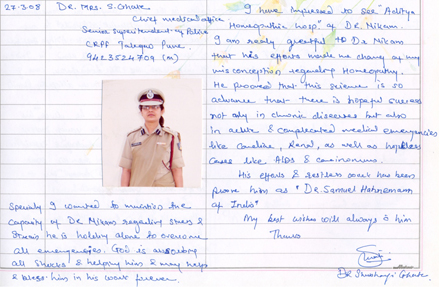 27-3-08 Dr. Mrs. S. Ghate
Chief medical office
Senior Superintendent of Police
CRPF Talegaon Pune.
9423524709 (m)
Specialy I wanted to mention the
capacity of Dr Nikam regarding stress &
Strain. he is holding alone to overcome
all emergencies. God is
all shocks & helping him & may help
& bless him in his work forever.
I have impressed to see "Aditya
Homeopathic hosp" of Dr. Nikam.
I am really greatful to Dr Nikam
that his efforts made me change of my
misconception regarding Homeopathy.
He prooved that this science is so
advance that there is hopeful success
not only in chronic diseases but also
in acute & complicated medical emergencies
like Cardiac, Renal, as well as hopeless
cases like AIDS & carcinomas.
His efforts & restless work has been
prove him as "Dr. Samuel Hahnemann
of India"
My best wishes will always to him
Thanks
Dr Ghate